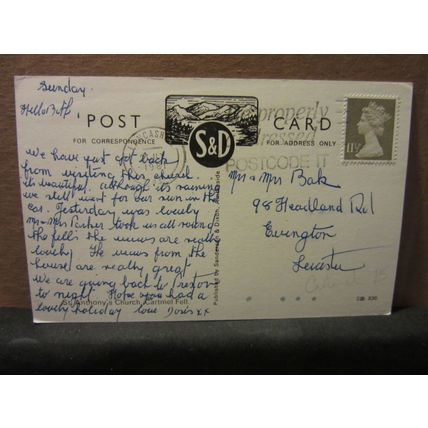 Sunday
Hello Both,
POST CARD
FOR CORRESPONDENCE
FOR ADDRESS ONLY
S&D
properly
POSTCODE IT
1981
11½
We have just got back
from visiting this church
its beautiful. although its raining
we still went for our run in the
car. Yesterday was lovely
Mr & Mrs Parker took us all round
the fells the views are really
lovely. The views from the
house are really great
we are going back to Preston
to night. Hope you had a
lovely holiday love Doris xx
Mr & Mrs Bak
98 Headland Rd
Evington
Leicester
St. Anthony's Church, Cartmel Fell
Published by Sanderson & Dixon, Ambleside